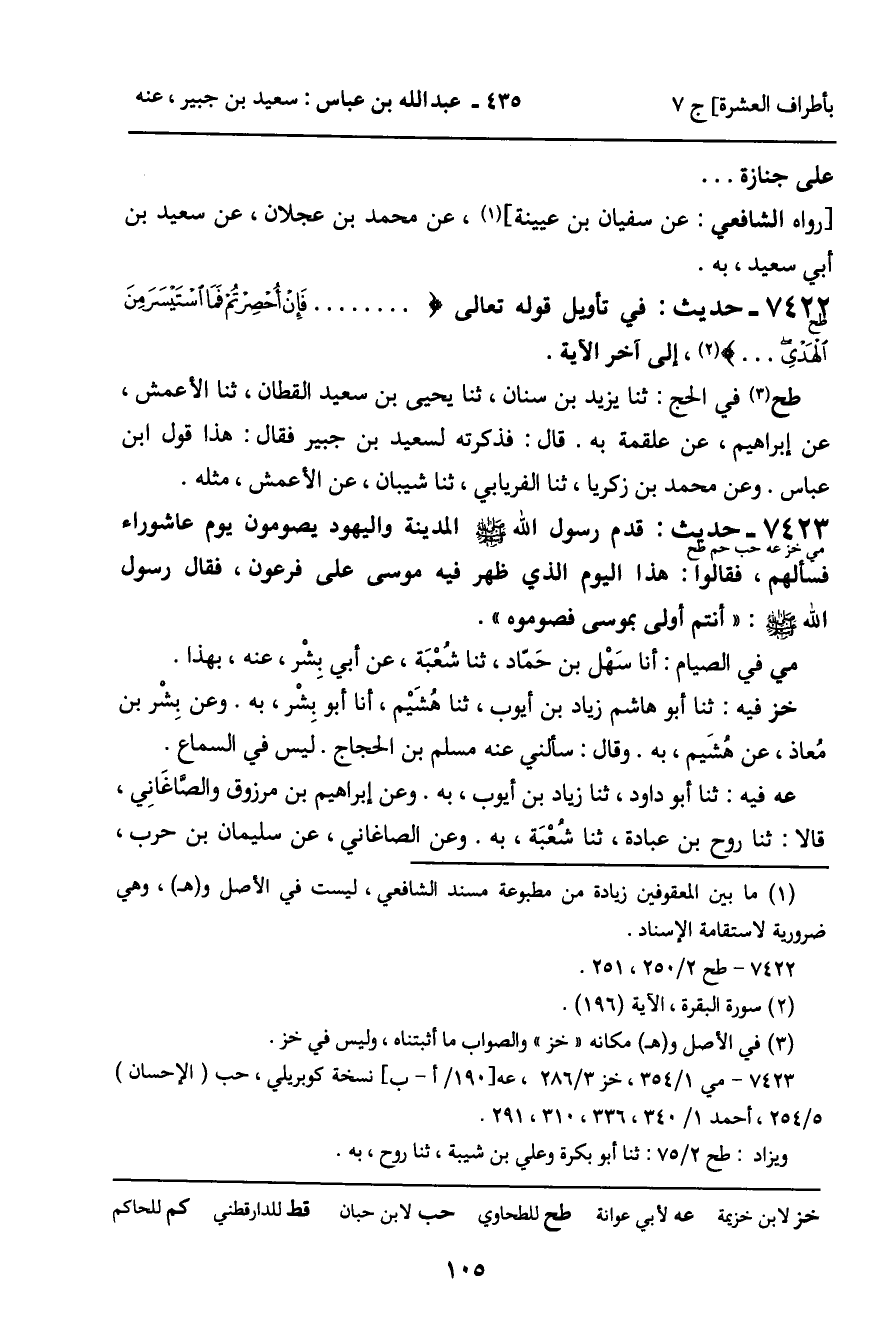 بأطراف العشرة] ج ٧ ٤٣٥ ـ عبدالله بن عباس : سعيد بن جبير ، عنه
على جنازة ...
[رواه الشافعي : عن سفيان بن عيينة](١) ، عن محمد بن عجلان ، عن سعيد بن
أبي سعيد ، به .
٧٤٢٢ ـ حديث : في تأويل قوله تعالى ﴿ ........ فَإِنْ أُحْصِرْتُمْ فَمَا ٱسْتَيْسَرَ مِنَ
طح
ٱلْهَدْىِ ۖ ... ﴾(٢) ، إلى آخر الآية .
طح(٣) في الحج : ثنا يزيد بن سنان ، ثنا يحيى بن سعيد القطان ، ثنا الأعمش ،
عن إبراهيم ، عن علقمة به . قال : فذكرته لسعيد بن جبير فقال : هذا قول ابن
عباس . وعن محمد بن زكريا ، ثنا الفريابي ، ثنا شيبان ، عن الأعمش ، مثله .
٧٤٢٣ ـ حديث : قدم رسول الله ﷺ المدينة واليهود يصومون يوم عاشوراء
مي خز عه حب حم طح
فسألهم ، فقالوا : هذا اليوم الذي ظهر فيه موسى على فرعون ، فقال رسول
الله ﷺ : « أنتم أولى بموسى فصوموه » .
مي في الصيام : أنا سَهْل بن حَمّاد ، ثنا شُعْبَة ، عن أبي بِشْر ، عنه ، بهذا .
خز فيه : ثنا أبو هاشم زياد بن أيوب ، ثنا هُشَيْم ، أنا أبو بِشْر ، به . وعن بِشْر بن
مُعاذ ، عن هُشَيم ، به . وقال : سألني عنه مسلم بن الحجاج . ليس في السماع .
عه فيه : ثنا أبو داود ، ثنا زياد بن أيوب ، به . وعن إبراهيم بن مرزوق والصَّاغَاني ،
قالا : ثنا روح بن عبادة ، ثنا شُعْبَة ، به . وعن الصاغاني ، عن سليمان بن حرب ،
(١) ما بين المعقوفين زيادة من مطبوعة مسند الشافعي ، ليست في الأصل و(هـ) ، وهي
ضرورية لاستقامة الإسناد .
٧٤٢٢ – طح ٢/ ٢٥٠ ، ٢٥١ .
(٢) سورة البقرة ، الآية (١٩٦) .
(٣) في الأصل و(هـ) مكانه « خز » والصواب ما أثبتناه ، وليس في خز .
٧٤٢٣ – مي ١/ ٣٥٤ ، خز ٣/ ٢٨٦ ، عه[١٩٠/ أ – ب] نسخة كوبريلي ، حب ( الإحسان )
٥/ ٢٥٤ ، أحمد ١/ ٣٤٠ ، ٣٣٦ ، ٣١٠ ، ٢٩١ .
ويزاد : طح ٢/ ٧٥ : ثنا أبو بكرة وعلي بن شيبة ، ثنا روح ، به .
خز لابن خزيمة عه لأبي عوانة طح للطحاوي حب لابن حبان قط للدارقطني كم للحاكم
١٠٥